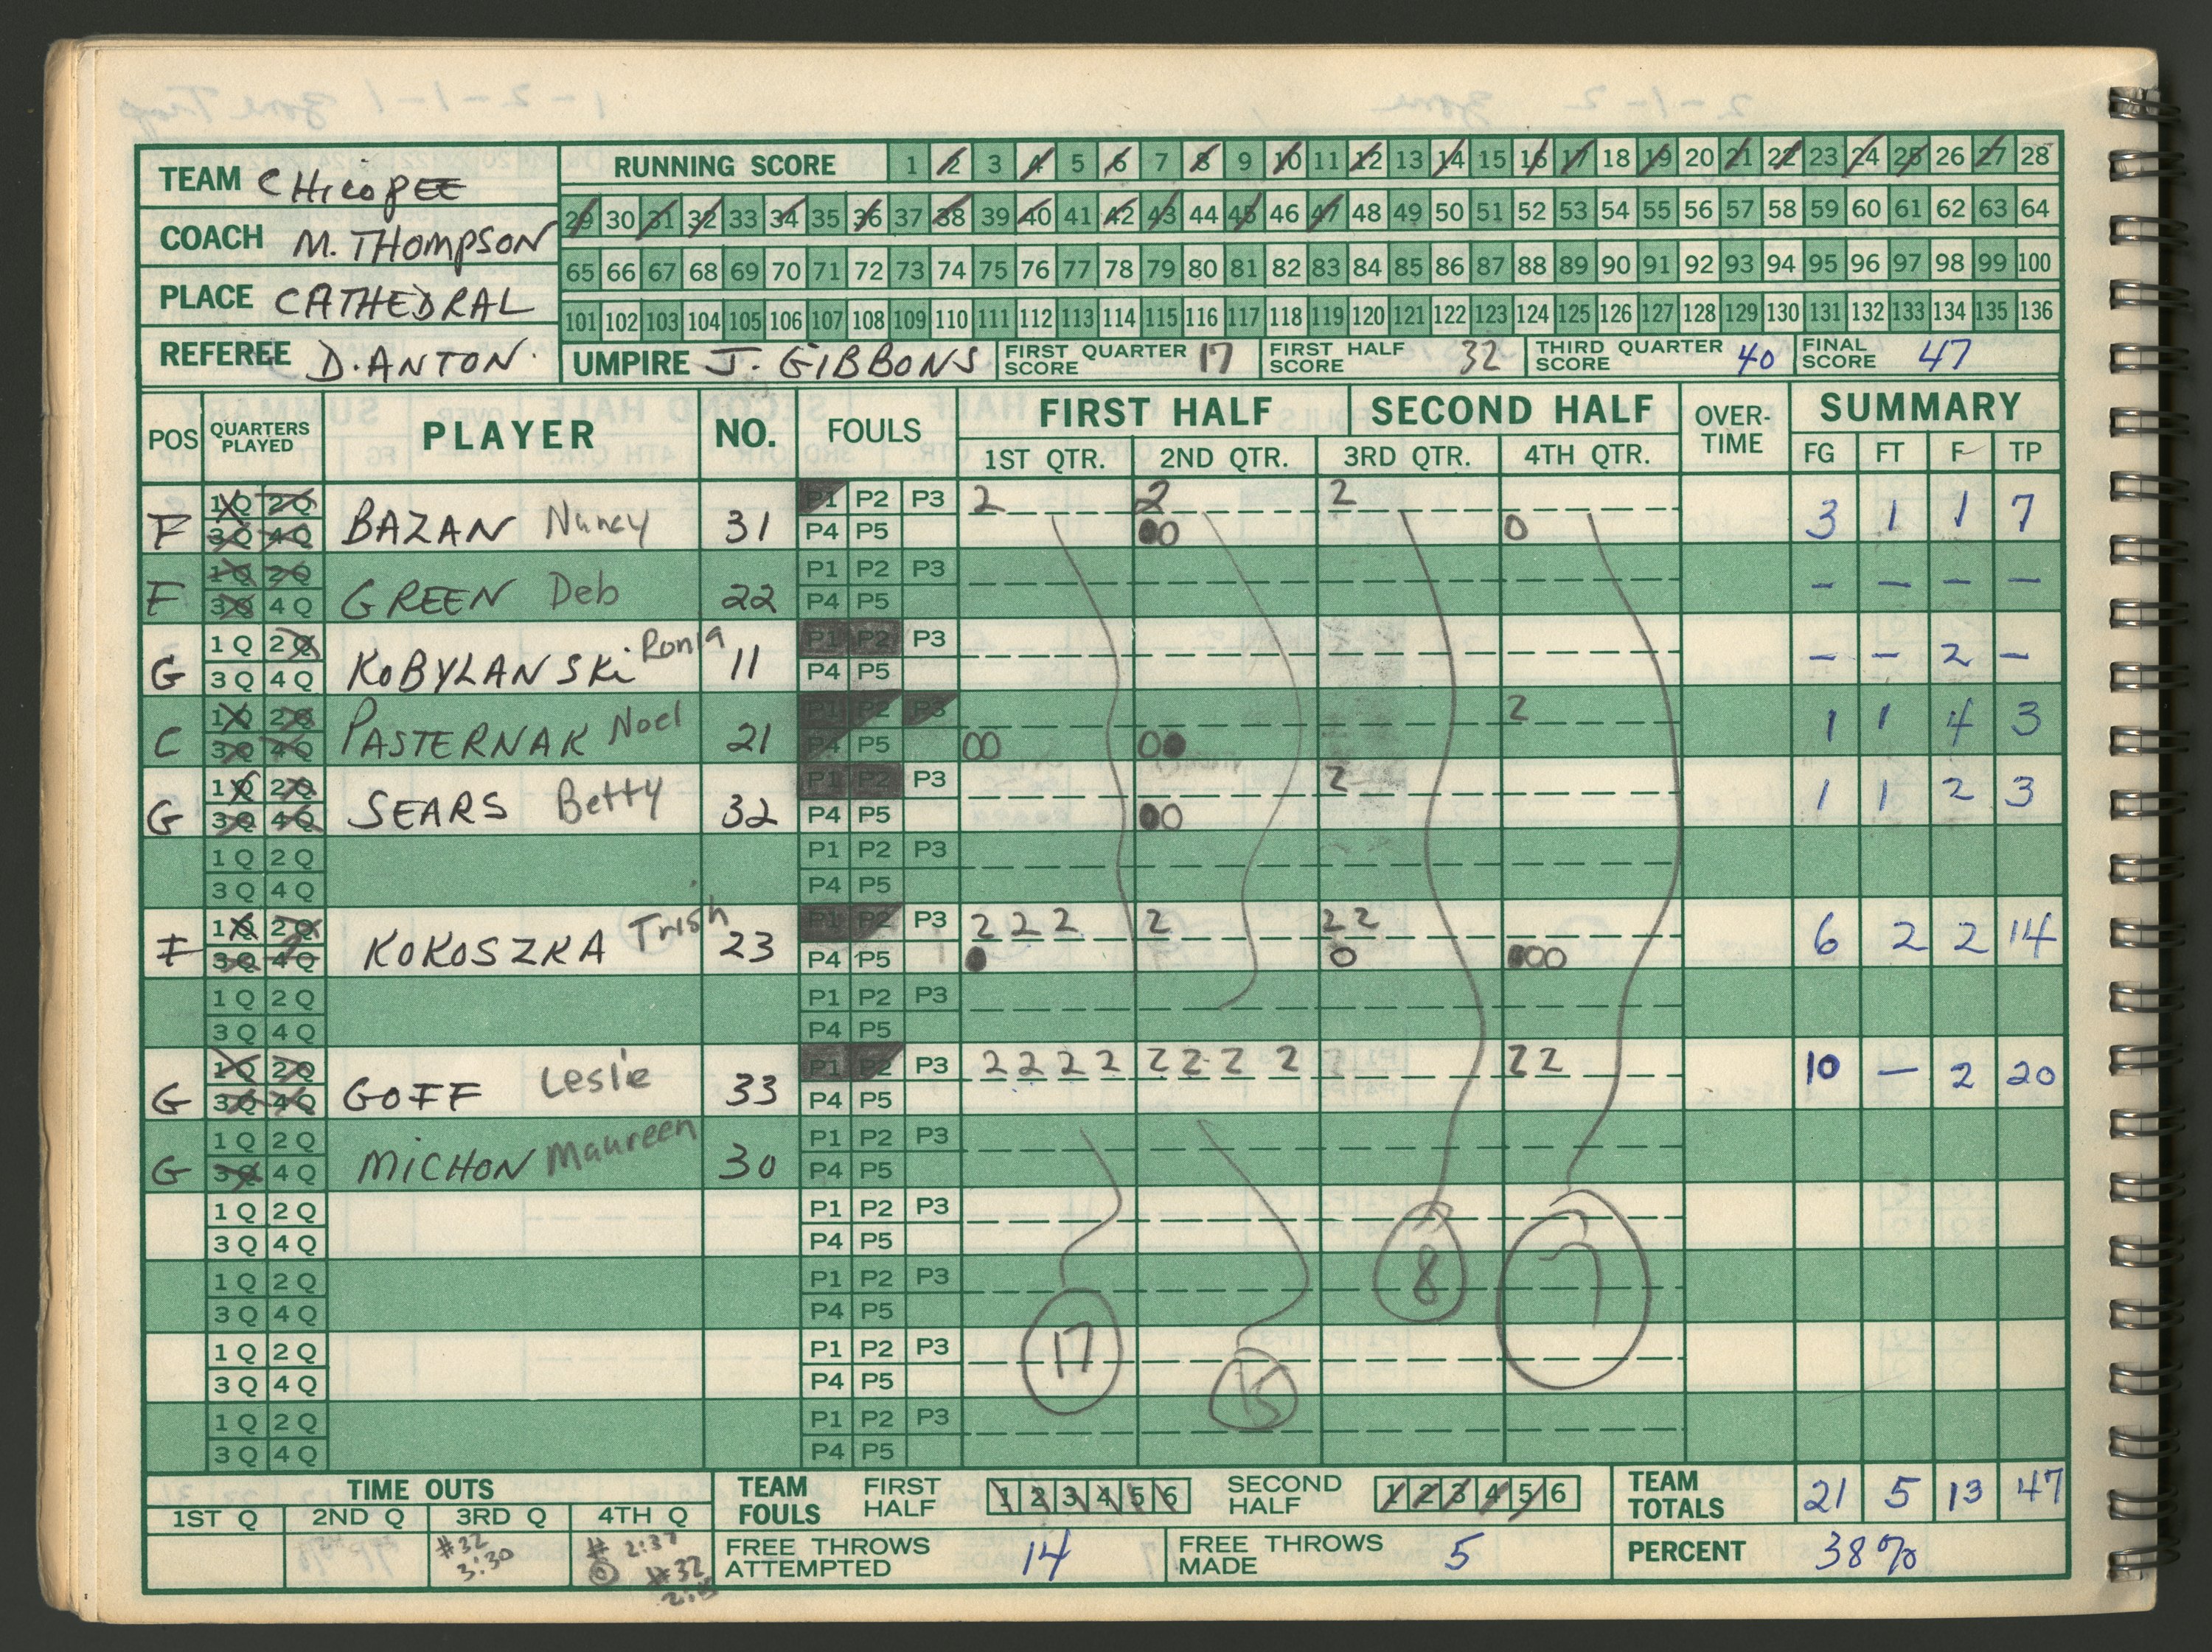 TEAM CHicoPEE
COACH M. THOMPSON
PLACE CATHEDRAL
REFEREE D. ANTON.
RUNNING SCORE 1 2 3 4 5 6 7 8 9 10 11 12 13 14 15 16 17 18 19 20 21 22 23 24 25 26 27 28
29 30 31 32 33 34 35 36 37 38 39 40 41 42 43 44 45 46 47 48 49 50 51 52 53 54 55 56 57 58 59 60 61 62 63 64
65 66 67 68 69 70 71 72 73 74 75 76 77 78 79 80 81 82 83 84 85 86 87 88 89 90 91 92 93 94 95 96 97 98 99 100
101 102 103 104 105 106 107 108 109 110 111 112 113 114 115 116 117 118 119 120 121 122 123 124 125 126 127 128 129 130 131 132 133 134 135 136
UMPIRE J. GIBBONS FIRST QUARTER SCORE 17 FIRST HALF SCORE 32 THIRD QUARTER SCORE 40 FINAL SCORE 47
POS QUARTERS PLAYED PLAYER NO. FOULS FIRST HALF SECOND HALF OVER-TIME SUMMARY
1ST QTR. 2ND QTR. 3RD QTR. 4TH QTR. FG FT F TP
F 1Q 2Q BAZAN Nancy 31 P1 P2 P3 2 2 2 3 1 1 7
3Q 4Q P4 P5 00 0
F 1Q 2Q GREEN Deb 22 P1 P2 P3 - - - -
3Q 4Q P4 P5
G 1Q 2Q KOBYLANSKi Ronia 11 P1 P2 P3 - - 2 -
3Q 4Q P4 P5
C 1Q 2Q PASTERNAK Noel 21 P1 P2 P3 2 1 1 4 3
3Q 4Q P4 P5 00 00
G 1Q 2Q SEARS Betty 32 P1 P2 P3 2 1 1 2 3
3Q 4Q P4 P5 00
1Q 2Q P1 P2 P3
3Q 4Q P4 P5
F 1Q 2Q KOKOSZKA Trish 23 P1 P2 P3 2 2 2 2 2 2 6 2 2 14
3Q 4Q P4 P5 0 0 000
1Q 2Q P1 P2 P3
3Q 4Q P4 P5
G 1Q 2Q GOFF Leslie 33 P1 P2 P3 2 2 2 2 2 2 2 2 2 2 10 - 2 20
3Q 4Q P4 P5
G 1Q 2Q MiCHON Maureen 30 P1 P2 P3
3Q 4Q P4 P5
1Q 2Q P1 P2 P3
3Q 4Q P4 P5 8 7
1Q 2Q P1 P2 P3
3Q 4Q P4 P5
1Q 2Q P1 P2 P3 17
3Q 4Q P4 P5 15
1Q 2Q P1 P2 P3
3Q 4Q P4 P5
TIME OUTS
1ST Q 2ND Q 3RD Q 4TH Q
#32 3:30
# 2:37
#32
TEAM FOULS FIRST HALF 1 2 3 4 5 6 SECOND HALF 1 2 3 4 5 6 TEAM TOTALS 21 5 13 47
FREE THROWS ATTEMPTED 14 FREE THROWS MADE 5 PERCENT 38%